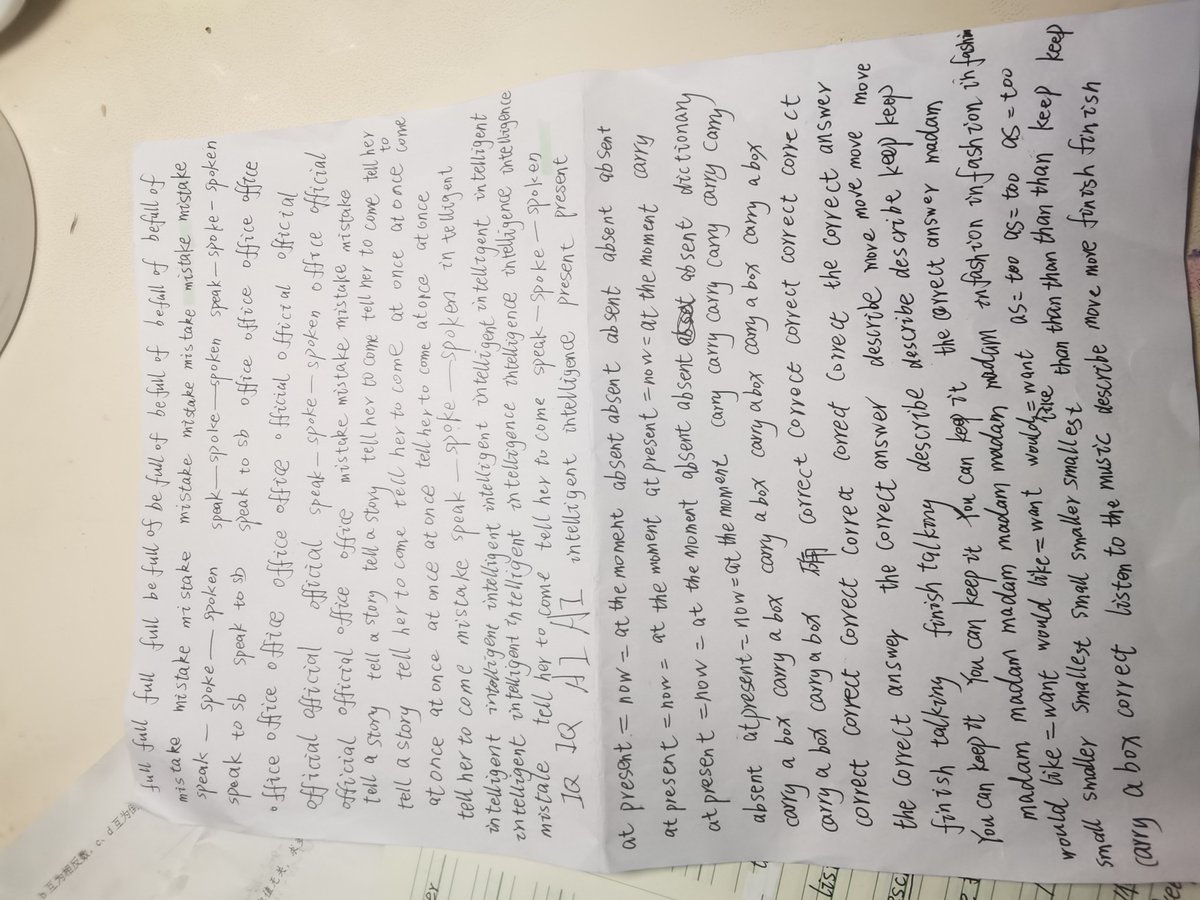 full full full full be full of be full of be full of be full of be full of
mistake mistake mistake mistake mistake mistake mistake mistake mistake
speak — spoke — spoken speak — spoke — spoken speak — spoke — spoken
speak to sb speak to sb speak to sb office office office office
office office office office office official official official
official official official speak — spoke — spoken office official
official official office office mistake mistake mistake mistake
tell a story tell a story tell a story tell her to come tell her to come tell her
tell a story tell her to come tell her to come at once at once to come
at once at once at once at once tell her to come at once at once
tell her to come mistake speak — spoke — spoken intelligent
intelligent intelligent intelligent intelligent intelligent intelligent intelligent
intelligent intelligent intelligent intelligence intelligence intelligence intelligence
mistale tell her to come tell her to come speak — spoke — spoken
IQ IQ AI AI intelligent intelligence present present
at present = now = at the moment absent absent absent absent absent
at present = now = at the moment at present = now = at the moment carry
at present = now = at the moment absent absent absent dictionary
absent at present = now = at the moment carry carry carry carry carry carry
carry a box carry a box carry a box carry a box carry a box carry a box
carry a box carry a box 确 correct correct correct correct correct
correct correct correct correct correct correct the correct answer
the correct answer the correct answer describe move move move move
finish talking finish talking describe describe describe keep keep
You can keep it You can keep it You can keep it the correct answer madam
madam madam madam madam madam madam madam infashion infashion infashion
would like = want would like = want would like = want as = too as = too as = too
small smaller smallest small smaller smallest than than than than keep keep
carry a box correct listen to the music describe move more finish finish
互为相反数, c、d 互为